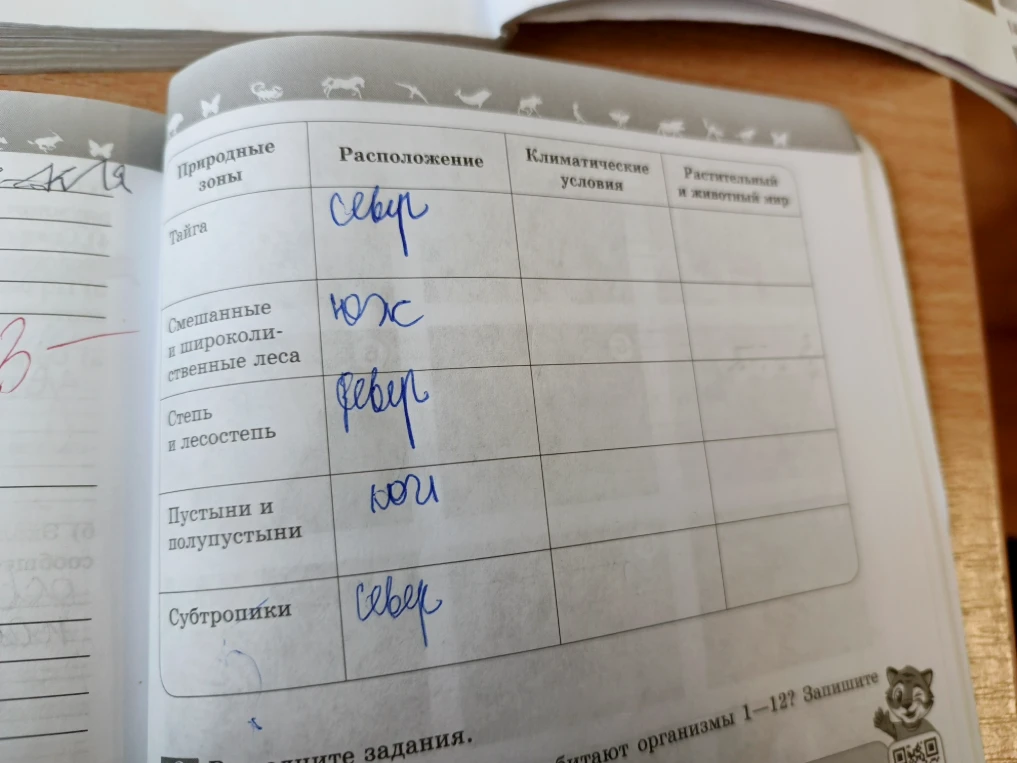 Природные зоны
Расположение
Климатические условия
Растительный и животный мир
Тайга
север
Смешанные
и широколи-
ственные леса
юж
Степь
и лесостепь
север
Пустыни и
полупустыни
юг
Субтропики
север
задания.
битают организмы 1—12? Запишите
б)
сообщ